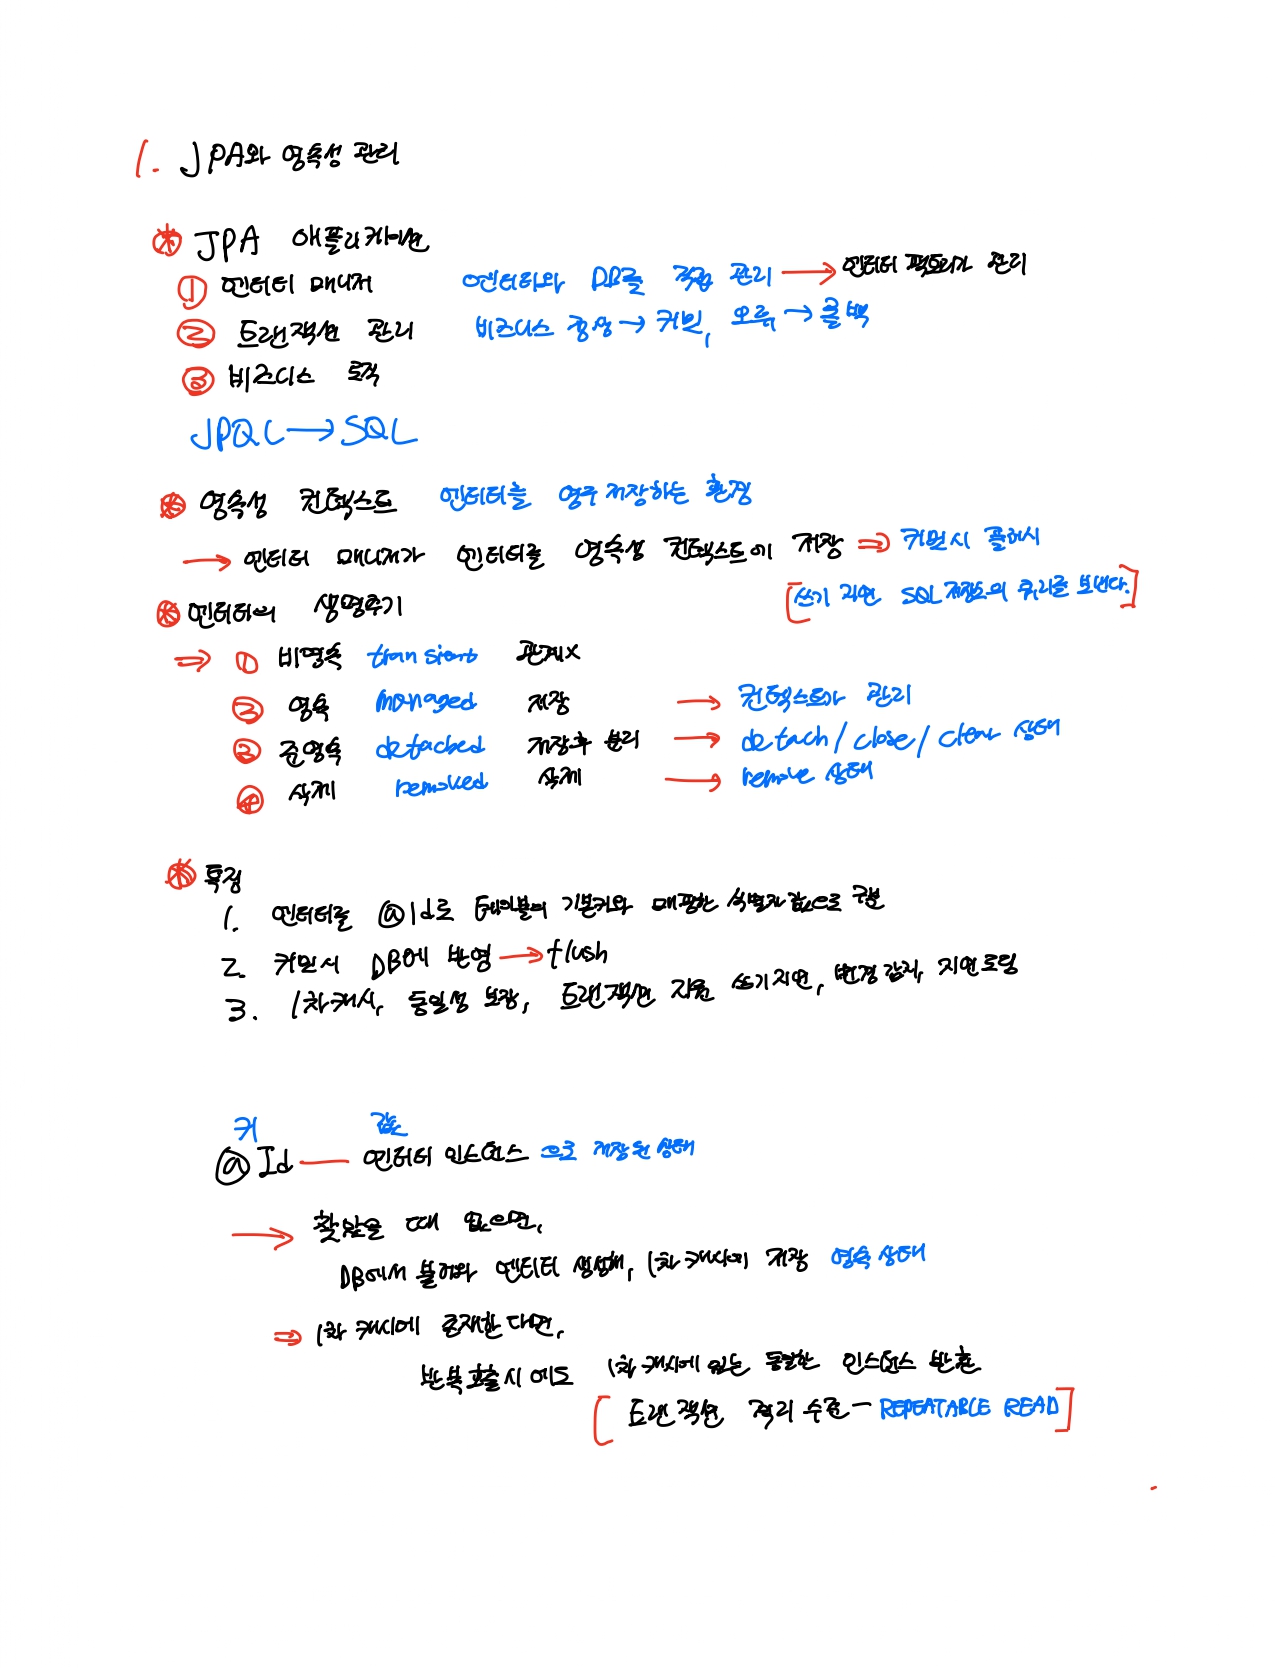 1. JPA와 영속성 관리
* JPA 애플리케이션
① 엔터티 매니저 엔터티와 DB를 직접 관리 → 엔터티 팩토리가 관리
② 트랜잭션 관리 비즈니스 정상 → 커밋, 오류 → 롤백
③ 비즈니스 로직
JPQL → SQL
* 영속성 컨텍스트 엔터티를 영구 저장하는 환경
→ 엔터티 매니저가 엔터티를 영속성 컨텍스트에 저장 ⇒ 커밋시 플러시
[쓰기 지연 SQL 저장소의 쿼리를 보낸다.]
* 엔터티의 생명주기
⇒ ① 비영속 transient 관계X
② 영속 managed 저장 → 컨텍스트가 관리
③ 준영속 detached 저장후 분리 → detach/close/clear 상태
④ 삭제 removed 삭제 → remove 상태
* 특징
1. 엔터티를 @Id로 테이블의 기본키와 매핑한 식별자 값으로 구분
2. 커밋시 DB에 반영 → flush
3. 1차캐시, 동일성 보장, 트랜잭션 지원 쓰기지연, 변경 감지, 지연로딩
키 값
@Id — 엔터티 인스턴스 으로 저장된 상태
→ 찾았을 때 없으면,
DB에서 불러와 엔터티 생성해, 1차 캐시에 저장 영속 상태
⇒ 1차 캐시에 존재한다면,
반복 호출시에도 1차 캐시에 있는 동일한 인스턴스 반환
[트랜잭션 격리 수준 - REPEATABLE READ]